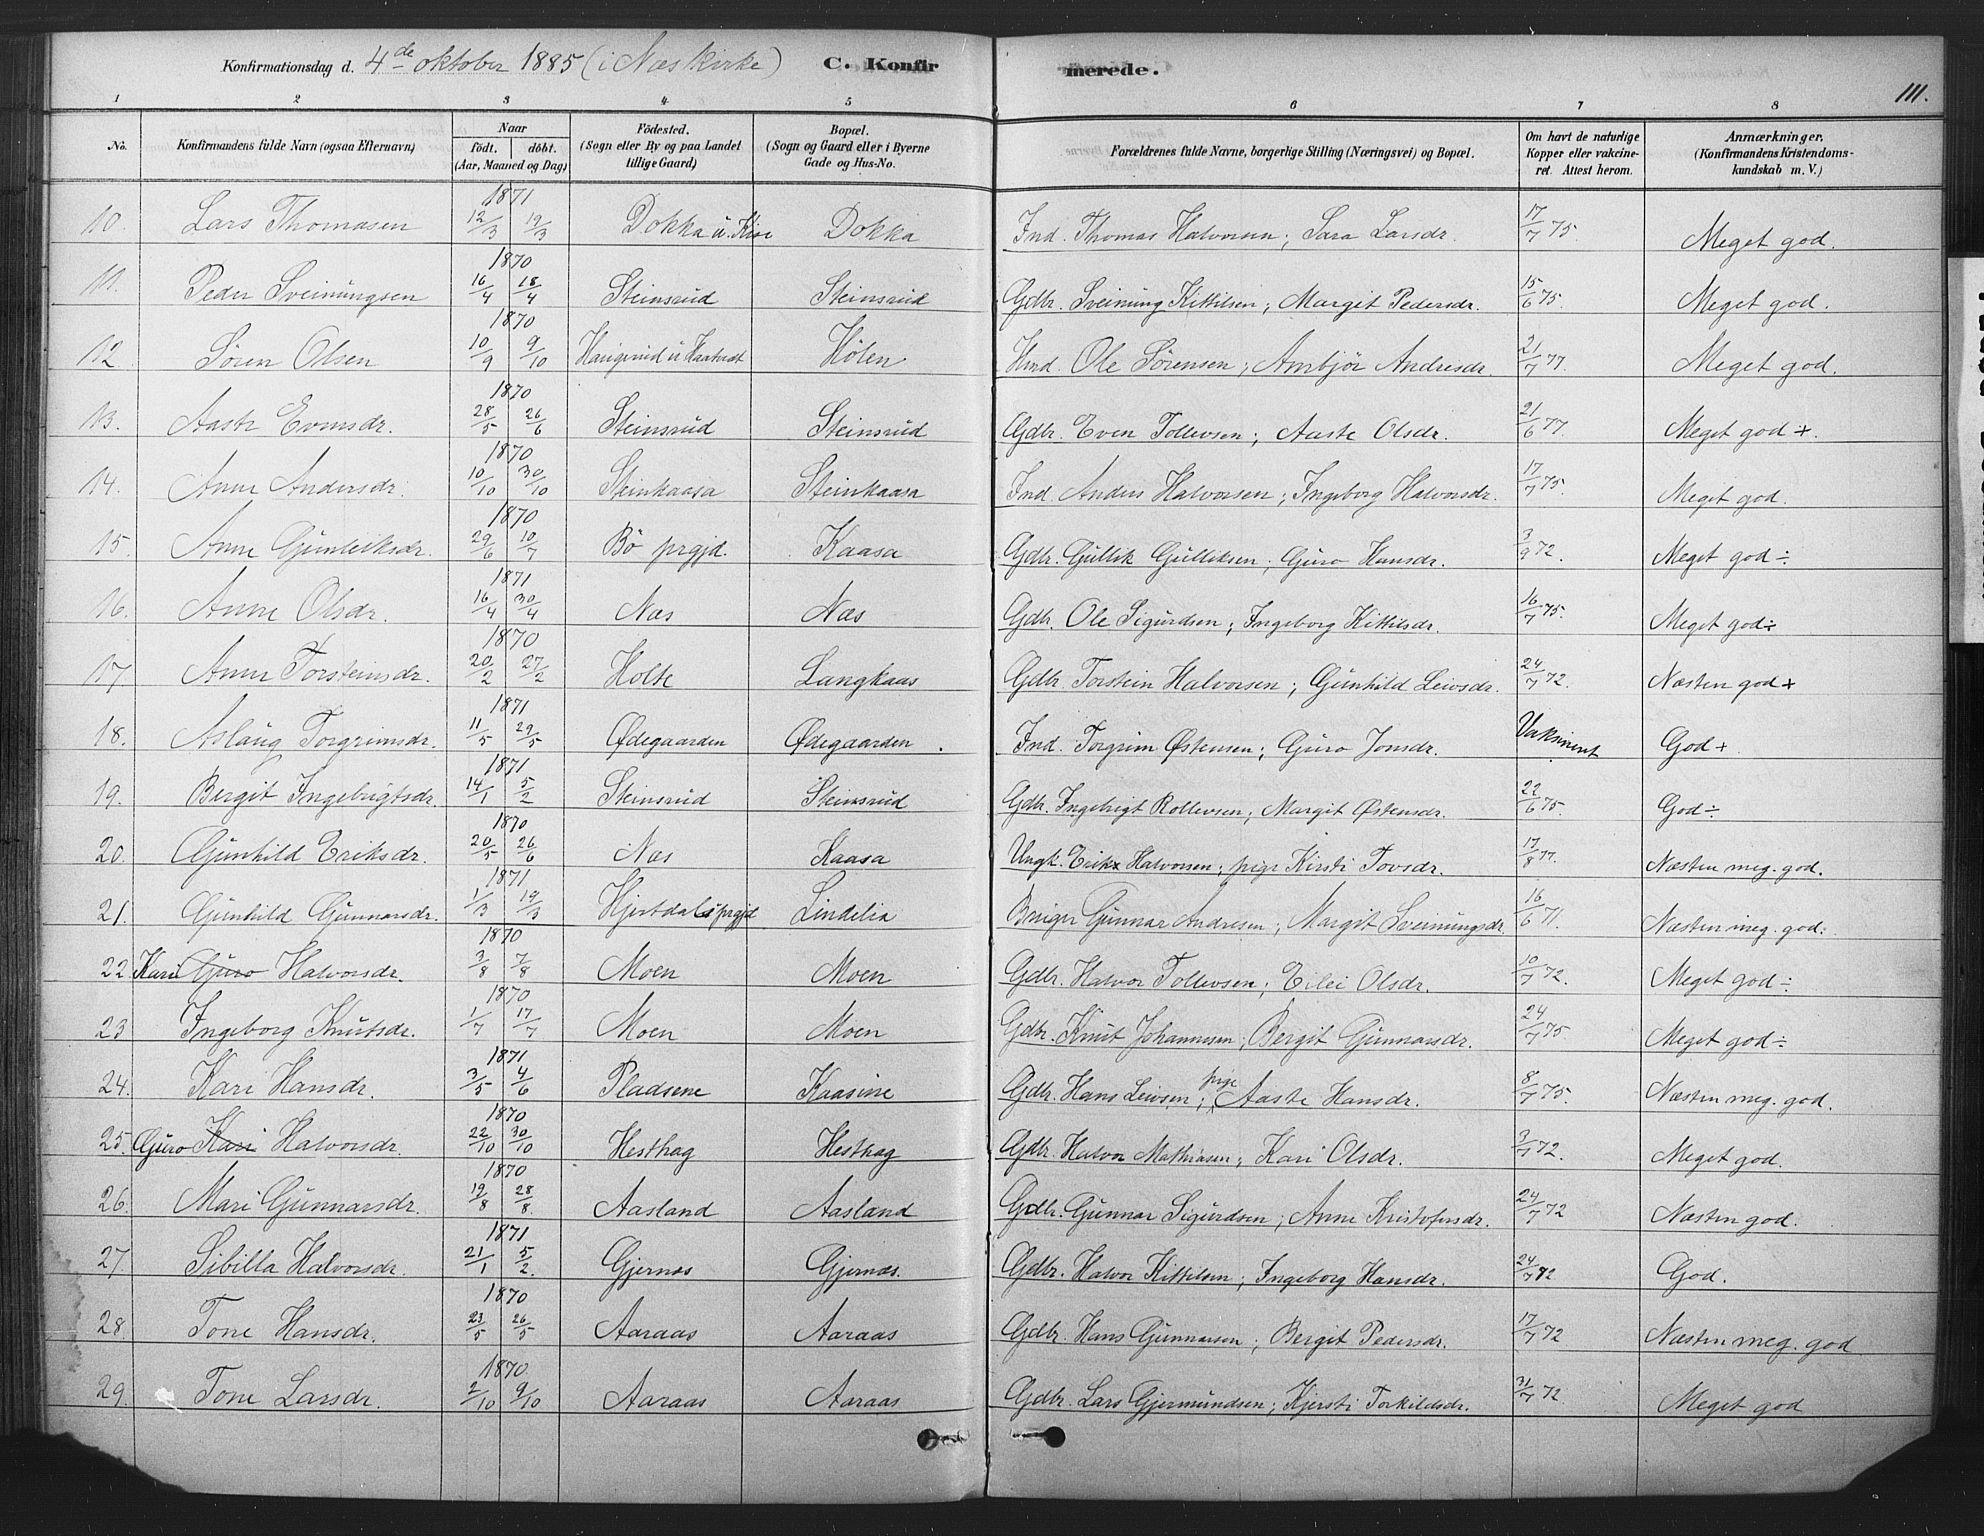 Konfirmationsdag d. 4de oktober 1885 (i Næs kirke) C. Konfirmerede. 111.
1 2 3 4 5 6 7 8
No. Konfirmandens fulde Navn (ogsaa Efternavn) Naar født. døbt. (Aar, Maaned og Dag) Födested. (Sogn eller By og paa Landet tillige Gaard) Bopæl. (Sogn og Gaard eller i Byerne Gade og Hus-No. Forældrenes fulde Navne, borgerlige Stilling (Næringsvei) og Bopæl. Om havt de naturlige Kopper eller vakcineret. Attest herom. Anmærkninger. (Konfirmandens Kristendomskundskab m. V.)
10. Lars Thomasen 1871 12/3 19/3 Dokka u. Kise Dokka Ind. Thomas Halvorsen; Sara Larsdr. 17/7 75. Meget god.
11. Peder Sveinungsen 1870 16/4 18/4 Steinsrud Steinsrud Gdbr. Sveinung Kittilsen; Margit Pedersdr. 15/6 75. Meget god.
12 Søren Olsen 1870 10/9 9/10 Hølen Hmd. Ole Sørensen; Ambjør Andresdr 21/7 77. Meget god.
13. Aaste Evensdr. 1870 28/5 26/6 Steinsrud Steinsrud Gdbr. Even Tollevsen; Aaste Olsdr. 21/6 77. Meget god +.
14. Anne Andersdr. 1870 10/10 30/10 Steinkaasa Steinkaasa Ind. Anders Halvorsen; Ingeborg Halvorsdr. 17/7 75. Meget god.
15. Anne Gunleiksdr. 1870 29/6 10/7 Bö prgjd. Kaasa Gdbr. Gullik Gulliksen; Guro Hansdr. 3/9 72. Meget god ÷
16. Anne Olsdr. 1871 16/4 30/4 Næs Næs Gdbr. Ole Sigurdsen; Ingeborg Kittilsdr. 16/7 75. Meget god ÷
17. Anne Torsteinsdr. 1870 20/2 27/2 Holte Langkaas Gdbr. Torstein Halvorsen; Gunhild Leivsdr. 24/7 72. Næsten god +
18. Aslaug Torgrimsdr. 1871 11/5 29/5 Ødegaarden Ødegaarden. Ind. Torgrim Østensen; Guro Jonsdr. Vaksineret God +
19. Bergit Ingebrigtsdr. 1871 14/1 5/2 Steinsrud Steinsrud Gdbr. Ingebrigt Rollevsen; Margit Østensdr. 22/6 75. God ÷
20. Gunhild Eriksdr. 1870 20/5 26/6 Næs Kaasa Ungk. Erik Halvorsen; pige Kirsti Tovsdr. 17/8 77. Næsten meg. god.
21. Gunhild Gunnarsdr. 1871 1/3 19/3 Hjertdals prgjd Lindelia Bruger Gunnar Andresen; Margit Sveinungsdr. 16/6 71. Næsten meg. god.
22. Kari Guro Halvorsdr. 1870 3/8 7/8 Moen Moen Gdbr. Halvor Tollevsen; Eilei Olsdr. 10/7 72. Meget god ÷
23 Ingeborg Knutsdr. 1870 1/7 17/7 Moen Moen Gdbr. Knut Johannesen; Bergit Gunnarsdr. 24/7 75 Meget god ÷
24. Kari Hansdr. 1871 3/5 4/6 Pladsene Kaasine Gdbr. Hans Leivsen; pige Aaste Hansdr. 8/7 75. Næsten meg. god.
25. Guro Kari Halvorsdr. 1870 22/10 30/10 Hesthag Hesthag Gdbr. Halvor Mathiasen; Kari Olsdr. 3/7 72. Meget god.
26. Mari Gunnarsdr. 1870 19/8 28/8. Aasland Aasland Gdbr. Gunnar Sigurdsen; Anne Kristofersdr. 24/7 72 Næsten god.
27. Sibilla Halvorsdr. 1871 21/1 5/2. Gjernes Gjernæs. Gdbr. Halvor Kittilsen; Ingeborg Hansdr. 24/7 72 God.
28. Tone Hansdr. 1870 23/5 26/5 Aaraas Aaraas Gdbr. Hans Gunnarsen; Bergit Pedersdr. 17/7 72 Næsten meg. god
29. Tone Larsdr. 1870 2/10 9/10 Aaraas Aaraas Gdbr. Lars Gjermundsen; Kjersti Torkildsdr. 31/7 72 Meget god